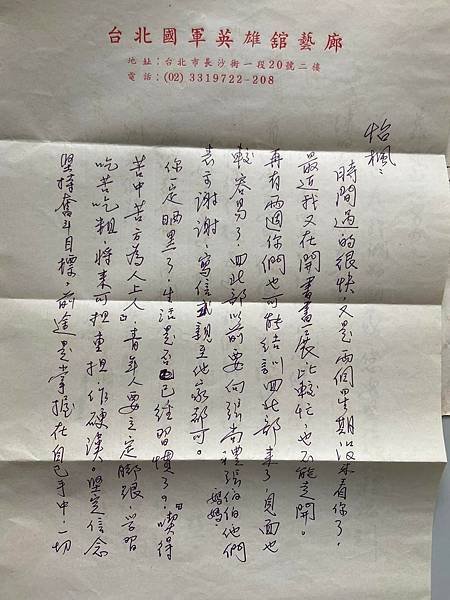 台北國軍英雄舘藝廊
地址：台北市長沙街一段20號二樓
電話：(02) 3319722-208
怡楓：
時間過的很快，又是兩個星期沒來看你了，
最近我又在開書畫展，比較忙，也不能走開。
再有兩週你們也可能結訓回北部來了，見面也
較容易了，回北部以前要向張尚禮張伯伯他們
表示謝謝，寫信或親至他家都可。
媽媽
你一定晒黑了，生活是否已經習慣了。喫得
苦中苦方為人上人，青年人要立定脚跟，學習
吃苦吃粗，將來可担重担，作硬漢。堅定信念
堅持奮斗目標，前途是掌握在自己手中，一切